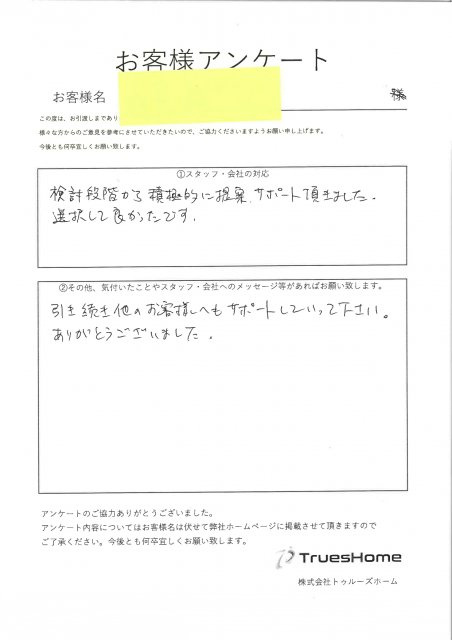 お客様アンケート
お客様名 様
この度は、お引渡しまであり
様々な方からのご意見を参考にさせていただきたいので、ご協力くださいますようお願い申し上げます。
今後とも何卒宜しくお願い致します。
①スタッフ・会社の対応
検討段階から積極的に提案、サポート頂きました。
選択して良かったです。
②その他、気付いたことやスタッフ・会社へのメッセージ等があればお願い致します。
引き続き他のお客様へもサポートしていって下さい。
ありがとうございました。
アンケートのご協力ありがとうございました。
アンケート内容についてはお客様名は伏せて弊社ホームページに掲載させて頂きますので
ご了承ください。今後とも何卒宜しくお願い致します。
TruesHome
株式会社トゥルーズホーム